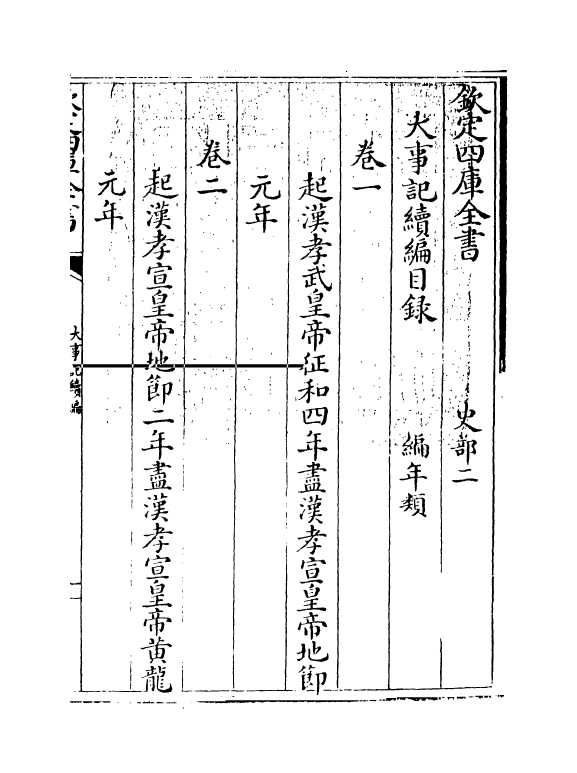 欽定四庫全書　史部二
大事記續編目録　編年類
卷一
起漢孝武皇帝征和四年盡漢孝宣皇帝地節
元年
卷二
起漢孝宣皇帝地節二年盡漢孝宣皇帝黃龍
元年
欽定四庫全書
大事記續編
一